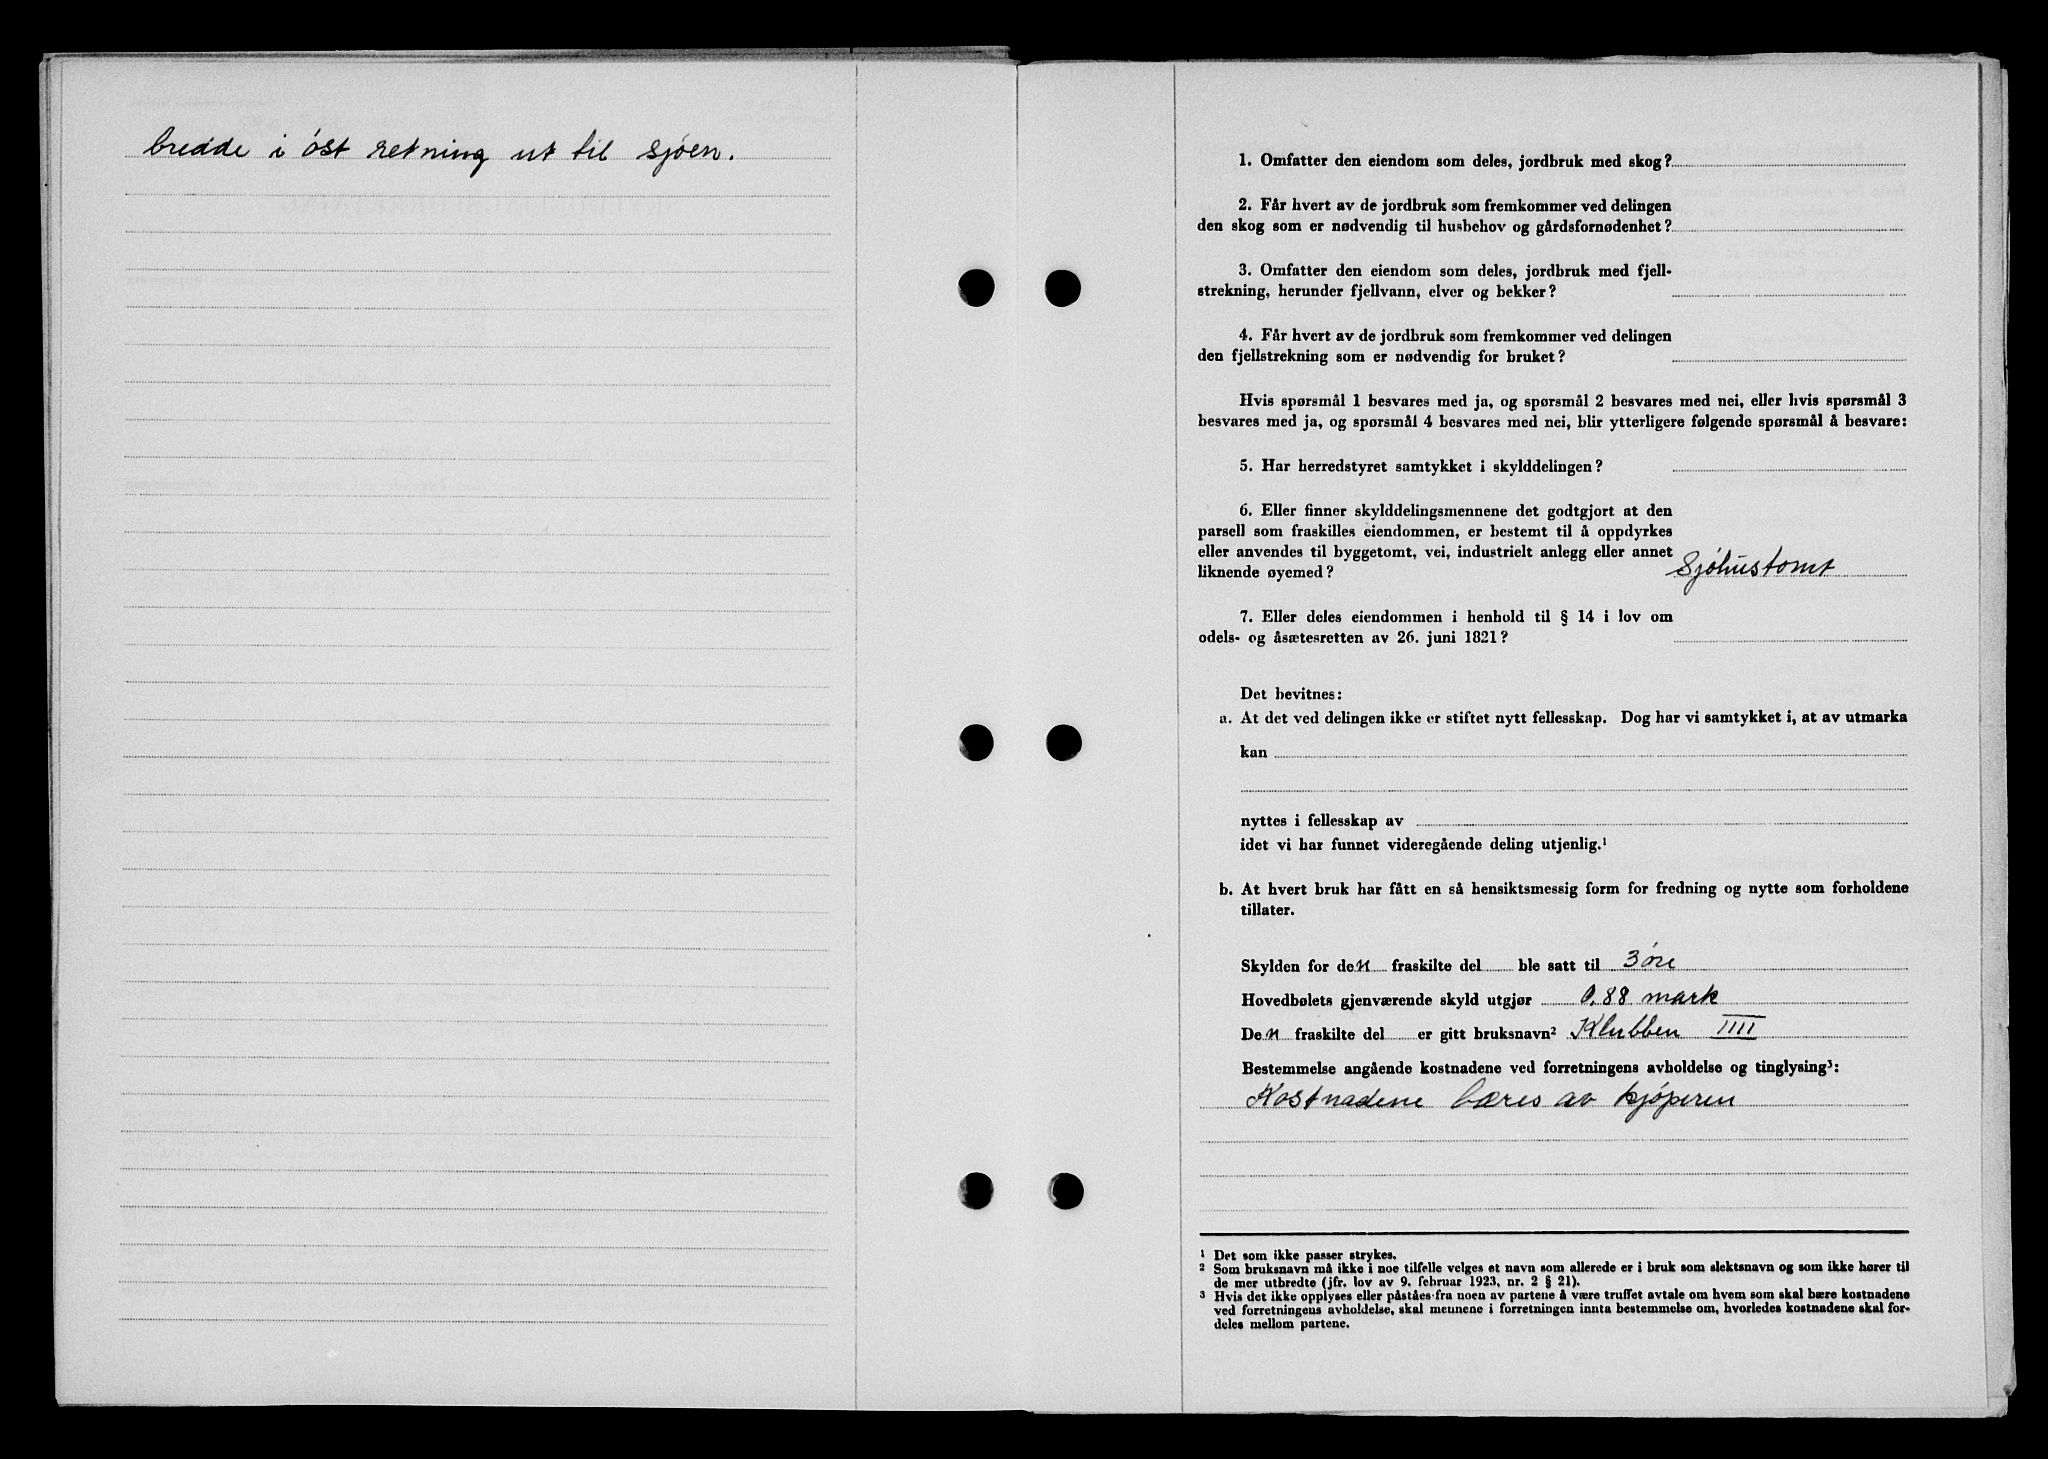 bredde i óst retning ut til sjóen.
1. Omfatter den eiendom som deles, jordbruk med skog?
2. Får hvert av de jordbruk som fremkommer ved delingen
den skog som er nødvendig til husbehov og gårdsfornødenhet?
3. Omfatter den eiendom som deles, jordbruk med fjell-
strekning, herunder fjellvann, elver og bekker?
4. Får hvert av de jordbruk som fremkommer ved delingen
den fjellstrekning som er nødvendig for bruket?
Hvis spørsmål 1 besvares med ja, og spørsmål 2 besvares med nei, eller hvis spørsmål 3
besvares med ja, og spørsmål 4 besvares med nei, blir ytterligere følgende spørsmål å besvare:
5. Har herredstyret samtykket i skylddelingen?
6. Eller finner skylddelingsmennene det godtgjort at den
parsell som fraskilles eiendommen, er bestemt til å oppdyrkes
eller anvendes til byggetomt, vei, industrielt anlegg eller annet
liknende øyemed? Sjóhustomt
7. Eller deles eiendommen i henhold til § 14 i lov om
odels- og åsætesretten av 26. juni 1821?
Det bevitnes:
a. At det ved delingen ikke er stiftet nytt fellesskap. Dog har vi samtykket i, at av utmarka
kan
nyttes i fellesskap av
idet vi har funnet videregående deling utjenlig.¹
b. At hvert bruk har fått en så hensiktsmessig form for fredning og nytte som forholdene
tillater.
Skylden for den fraskilte del ble satt til 3 óre
Hovedbølets gjenværende skyld utgjør 0,88 mark
Den fraskilte del er gitt bruksnavn² Klubben IIII
Bestemmelse angående kostnadene ved forretningens avholdelse og tinglysing³:
Kostnadene bæres av kjóperen
¹ Det som ikke passer strykes.
² Som bruksnavn må ikke i noe tilfelle velges et navn som allerede er i bruk som slektsnavn og som ikke hører til
de mer utbredte (jfr. lov av 9. februar 1923, nr. 2 § 21).
³ Hvis det ikke opplyses eller påståes fra noen av partene å være truffet avtale om hvem som skal bære kostnadene
ved forretningens avholdelse, skal mennene i forretningen innta bestemmelse om, hvorledes kostnadene skal for-
deles mellom partene.